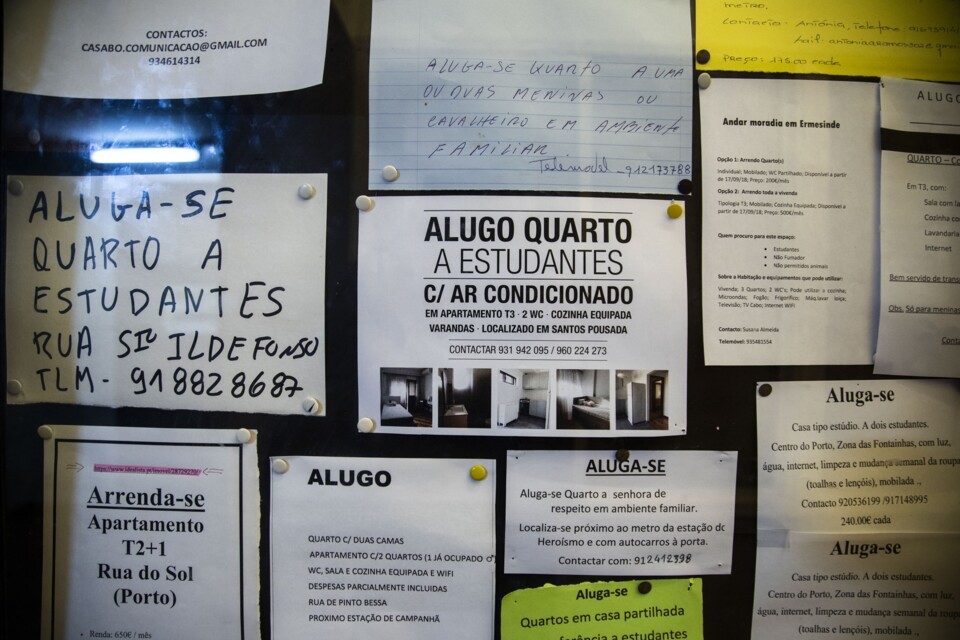 CONTACTOS:
CASABO.COMUNICACAO@GMAIL.COM
934614314
ALUGA-SE QUARTO A UMA
OU DUAS MENINAS OU
CAVALHEIRO EM AMBIENTE
FAMILIAR
Telemóvel _ 912173788
METRO.
Contacto: Antónia, Telefone:
Preço: 175.00 cada
ALUGA-SE
QUARTO A
ESTUDANTES
RUA STO ILDEFONSO
TLM- 918828687
ALUGO QUARTO
A ESTUDANTES
C/ AR CONDICIONADO
EM APARTAMENTO T3 · 2 WC · COZINHA EQUIPADA
VARANDAS · LOCALIZADO EM SANTOS POUSADA
CONTACTAR 931 942 095 / 960 224 273
Andar moradia em Ermesinde
Opção 1: Arrendo Quarto(s)
Individual; Mobilado; WC Partilhado; Disponível a partir
de 17/09/18; Preço: 200€/mês
Opção 2: Arrendo toda a vivenda
Tipologia T3; Mobilado; Cozinha Equipada; Disponível a
partir de 17/09/18; Preço: 500€/mês
Quem procuro para este espaço:
• Estudantes
• Não Fumador
• Não permitidos animais
Sobre a Habitação e equipamentos que pode utilizar:
Vivenda; 3 Quartos; 2 WC's; Pode utilizar a cozinha;
Microondas; Fogão; Frigorífico; Maq.lavar loiça,
Televisão; TV Cabo; Internet WIFI
Contacto: Susana Almeida
Telemóvel: 935481554
ALUGO
QUARTO – Co
Em T3, com:
Sala com la
Cozinha co
Lavandaria
Internet
Bem servido de trans
Obs. Só para meninas
Conta
Arrenda-se
Apartamento
T2+1
Rua do Sol
(Porto)
• Renda: 650€ / mês
ALUGO
QUARTO C/ DUAS CAMAS
APARTAMENTO C/2 QUARTOS (1 JÁ OCUPADO ♂
WC, SALA E COZINHA EQUIPADA E WIFI
DESPESAS PARCIALMENTE INCLUIDAS
RUA DE PINTO BESSA
PROXIMO ESTAÇÃO DE CAMPANHÃ
ALUGA-SE
Aluga-se Quarto a senhora de
respeito em ambiente familiar.
Localiza-se próximo ao metro da estação do
Heroísmo e com autocarros à porta.
Contactar com: 912412398
Aluga-se
Quartos em casa partilhada
ferência a estudantes
Aluga-se
Casa tipo estúdio. A dois estudantes.
Centro do Porto, Zona das Fontainhas, com luz,
água, internet, limpeza e mudança semanal da roupa
(toalhas e lençóis), mobilada .,
Contacto 920536199 /917148995
240.00€ cada
Aluga-se
Casa tipo estúdio. A dois estudantes.
Centro do Porto, Zona das Fontainhas, com luz,
água, internet, limpeza e mudança semanal da roupa
(toalhas e lençóis), mobilada .,